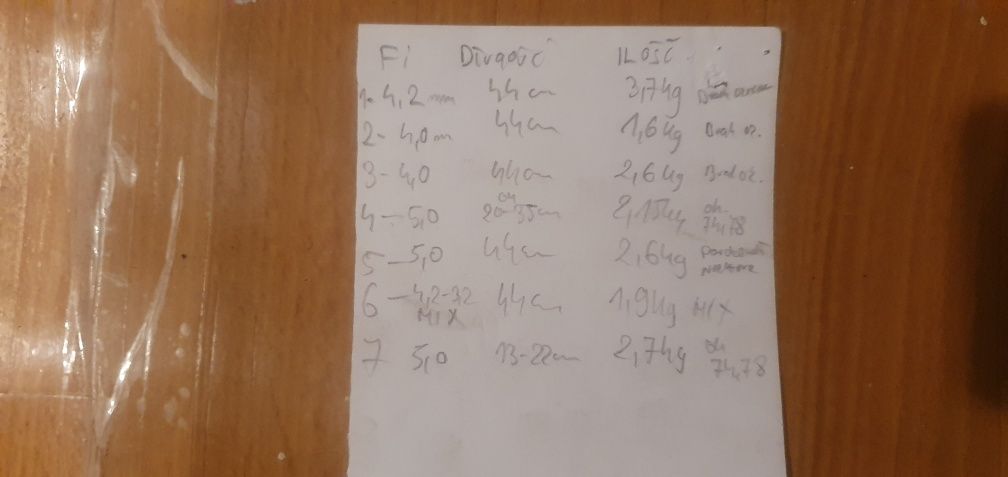 Fi Długość ILOŚĆ
1- 4,2 mm 44 cm 3,7 kg
2- 4,0 m 44 cm 1,6 kg Brak oz.
3- 4,0 44 cm 2,6 kg Brak oz.
4- 5,0 od 20-35 cm 2,15 kg ok. 74,78
5- 5,0 44 cm 2,6 kg
6- 4,2-3,2 MIX 44 cm 1,9 kg MIX
7 5,0 13-22 cm 2,7 kg ok 74,78